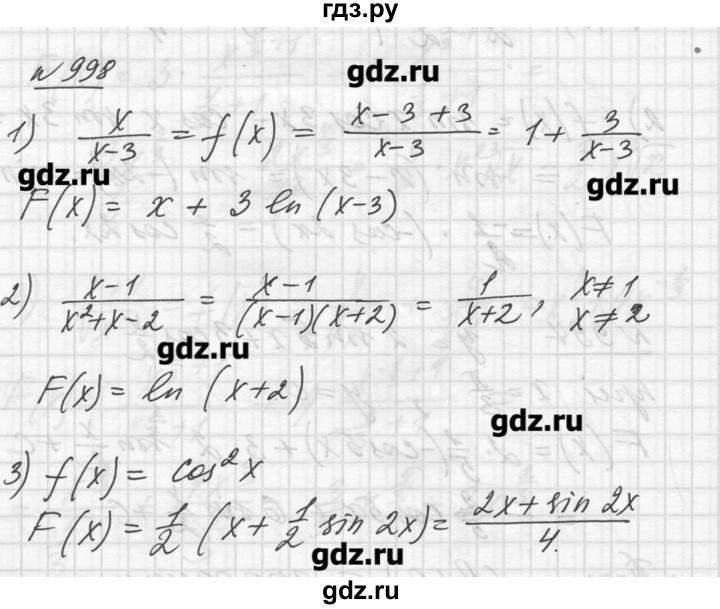 гдз.ру
№ 998
gdz.ru
1) x/(x-3) = f(x) = (x-3+3)/(x-3) = 1 + 3/(x-3)
gdz.ru
gdz.ru
F(x) = x + 3 ln (x-3)
2) (x-1)/(x²+x-2) = (x-1)/((x-1)(x+2)) = 1/(x+2), x≠1
x≠2
gdz.ru
F(x) = ln (x+2)
gdz.ru
3) f(x) = cos²x
F(x) = 1/2 (x + 1/2 sin 2x) = (2x + sin 2x)/4.
gdz.ru
gdz.ru